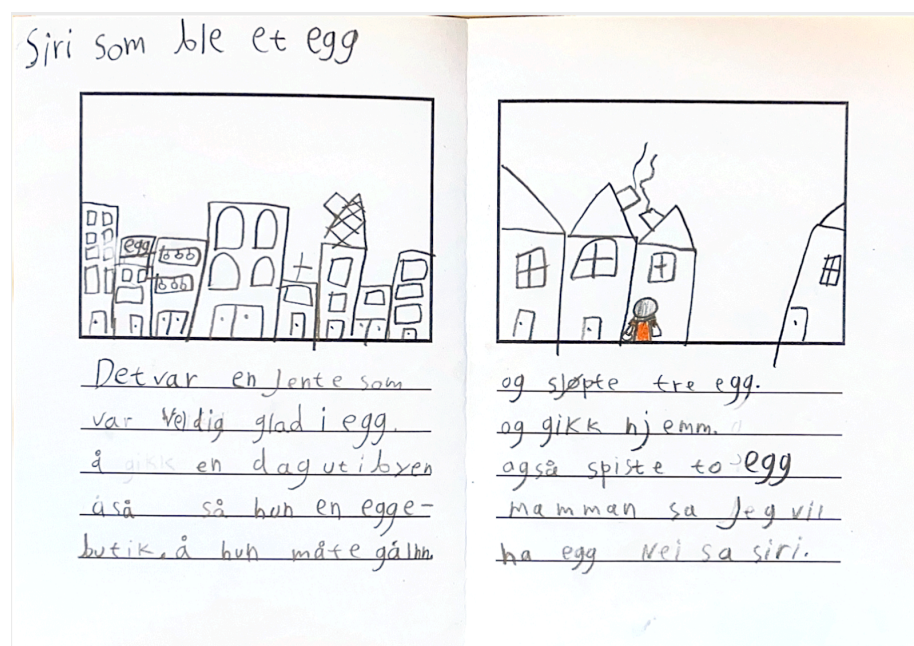 Siri som ble et egg
egg
Det var en Jente som
var Veldig glad i egg.
å gikk en dag ut i byen
åså så hun en egge-
butik. å hun måte gå Ihn.
og sjøpte tre egg.
og gikk hjemm.
også spiste to egg
mamman sa Jeg vil
ha egg Nei sa siri.